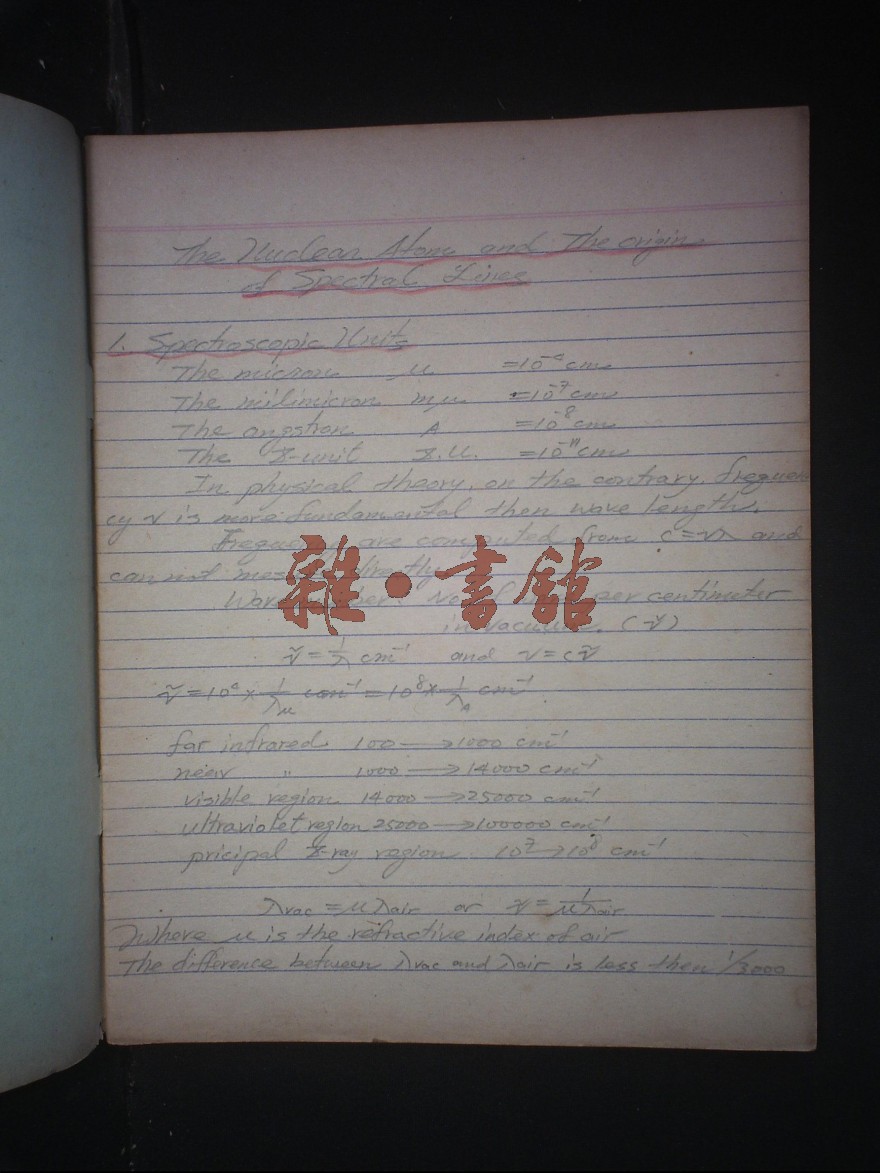 The Nuclear Atom and The origin
of Spectral Lines
1. Spectroscopic Units
The micron μ =10⁻⁴ cm
The milimicron mμ =10⁻⁷ cm
The angstron A =10⁻⁸ cm
The X-unit X.U. =10⁻¹¹ cm
In physical theory, on the contrary, frequen
cy ν is more fundamental then wave length.
Frequency are computed from c=νλ and
can not directly
per centimeter
in vacuum. (ν̃)
雜·書館
ν̃ = 1/λ cm⁻¹ and ν = cν̃
ν̃ = 10⁴ × 1/λμ cm⁻¹ = 10⁸ × 1/λA cm⁻¹
far infrared 100 → 1000 cm⁻¹
near " 1000 → 14000 cm⁻¹
visible region 14000 → 25000 cm⁻¹
ultraviolet region 25000 → 100000 cm⁻¹
pricipal X-ray region 10⁷ → 10⁸ cm⁻¹
λvac = μ λair or ν̃ = 1/μλair
Where μ is the refractive index of air
The difference between λvac and λair is less then 1/3000